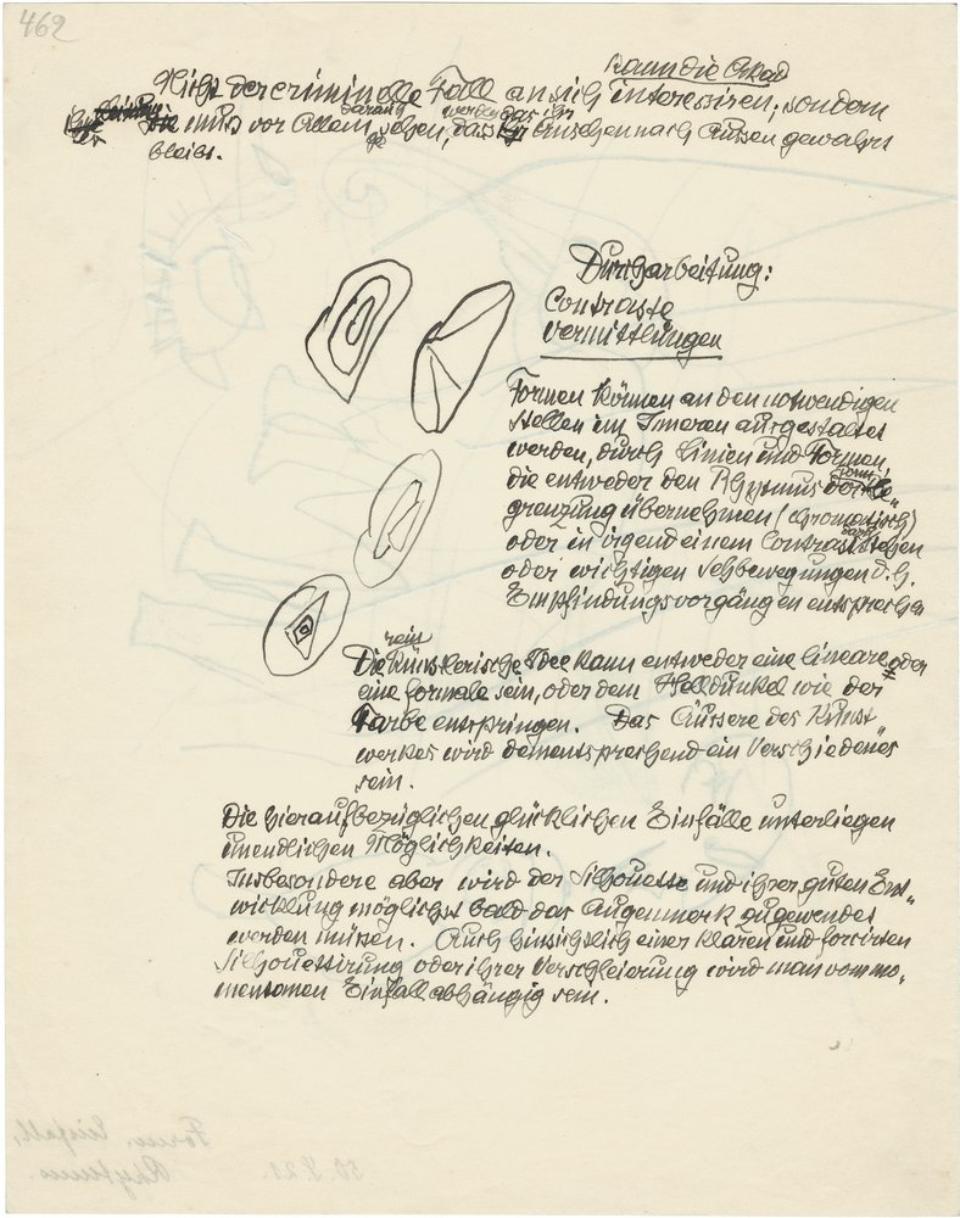 462
kann die Akad
Nicht der criminelle Fall an sich interessiren; sondern
sie muss vor Allem darauf gesehen werden, dass ihr Ansehen nach Aussen gewahrt
bleibt.
Durcharbeitung:
Contraste
Vermittlungen
Formen können an den notwendigen
Stellen im Inneren ausgestaltet
werden, durch Linien und Formen,
die entweder den Rhytmus der Form be„
grenzung übernehmen (chromatisch)
oder in irgend einem Contrast stehen
oder wichtigen Sehbewegungen d. h.
Empfindungsvorgängen entsprechen
Die rein künstlerische Idee kann entweder eine lineare oder
eine formale sein, oder dem Helldunkel wie der
Farbe entspringen. Das Äussere des Kunst„
werkes wird dementsprechend ein Verschiedenes
sein.
Die hierauf bezüglichen glücklichen Einfälle unterliegen
unendlichen Möglichkeiten.
Insbesondere aber wird der Silhouette und ihrer guten Ent„
wicklung möglichst bald das Augenmerk zugewendet
werden müssen. Auch hinsichtlich einer klaren und forcirten
Silhouettirung oder ihrer Verschleierung wird man vom mo„
mentanen Einfall abhängig sein.
Form, Einfall,
Rhytmus.